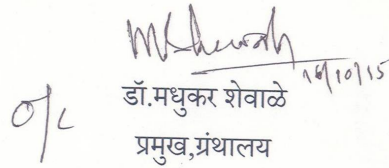 16/10/15
O/C
डॉ.मधुकर शेवाळे
प्रमुख,ग्रंथालय